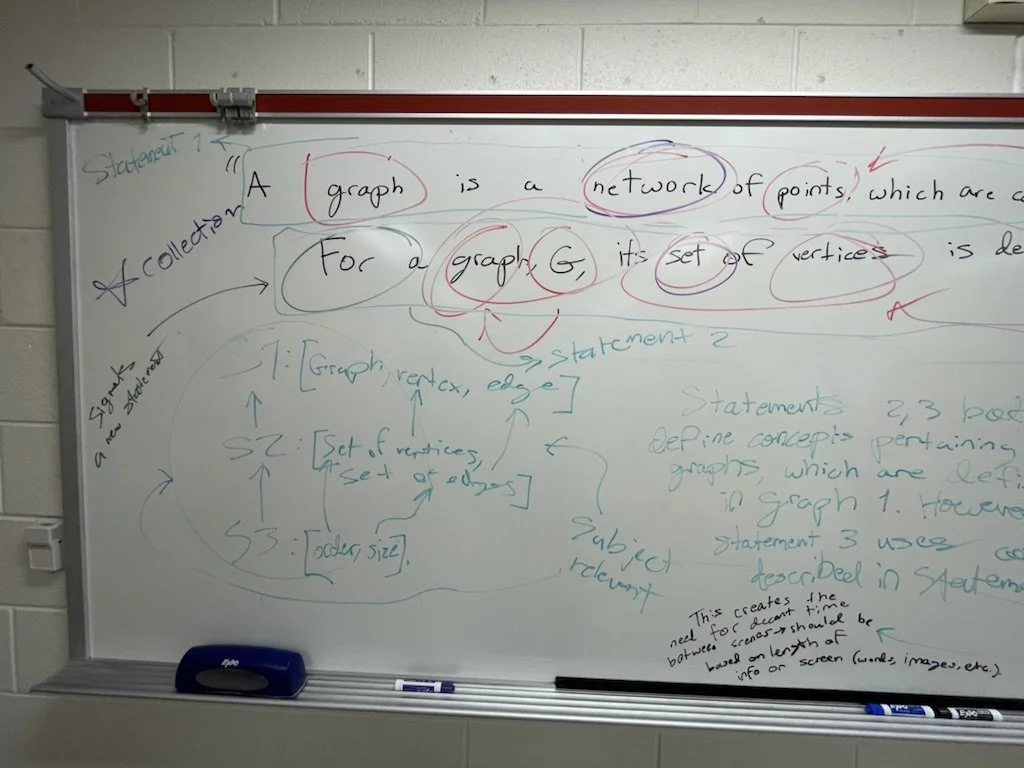 Statement 1
"A graph is a network of points, which are
collection
For a graph, G, it's set of vertices is de
Signals
a new statement
statement 2
S1: [Graph, vertex, edge]
S2: [Set of vertices,
set of edges]
S3: [order, size].
Subject
relevant
Statements 2,3 bot
define concepts pertaining
graphs, which are defi
in graph 1. However
statement 3 uses co
described in Stateme
This creates the
need for decent time
between scenes → should be
based on length of
info on screen (words, images, etc.)
EXPO
EXPO
EXPO